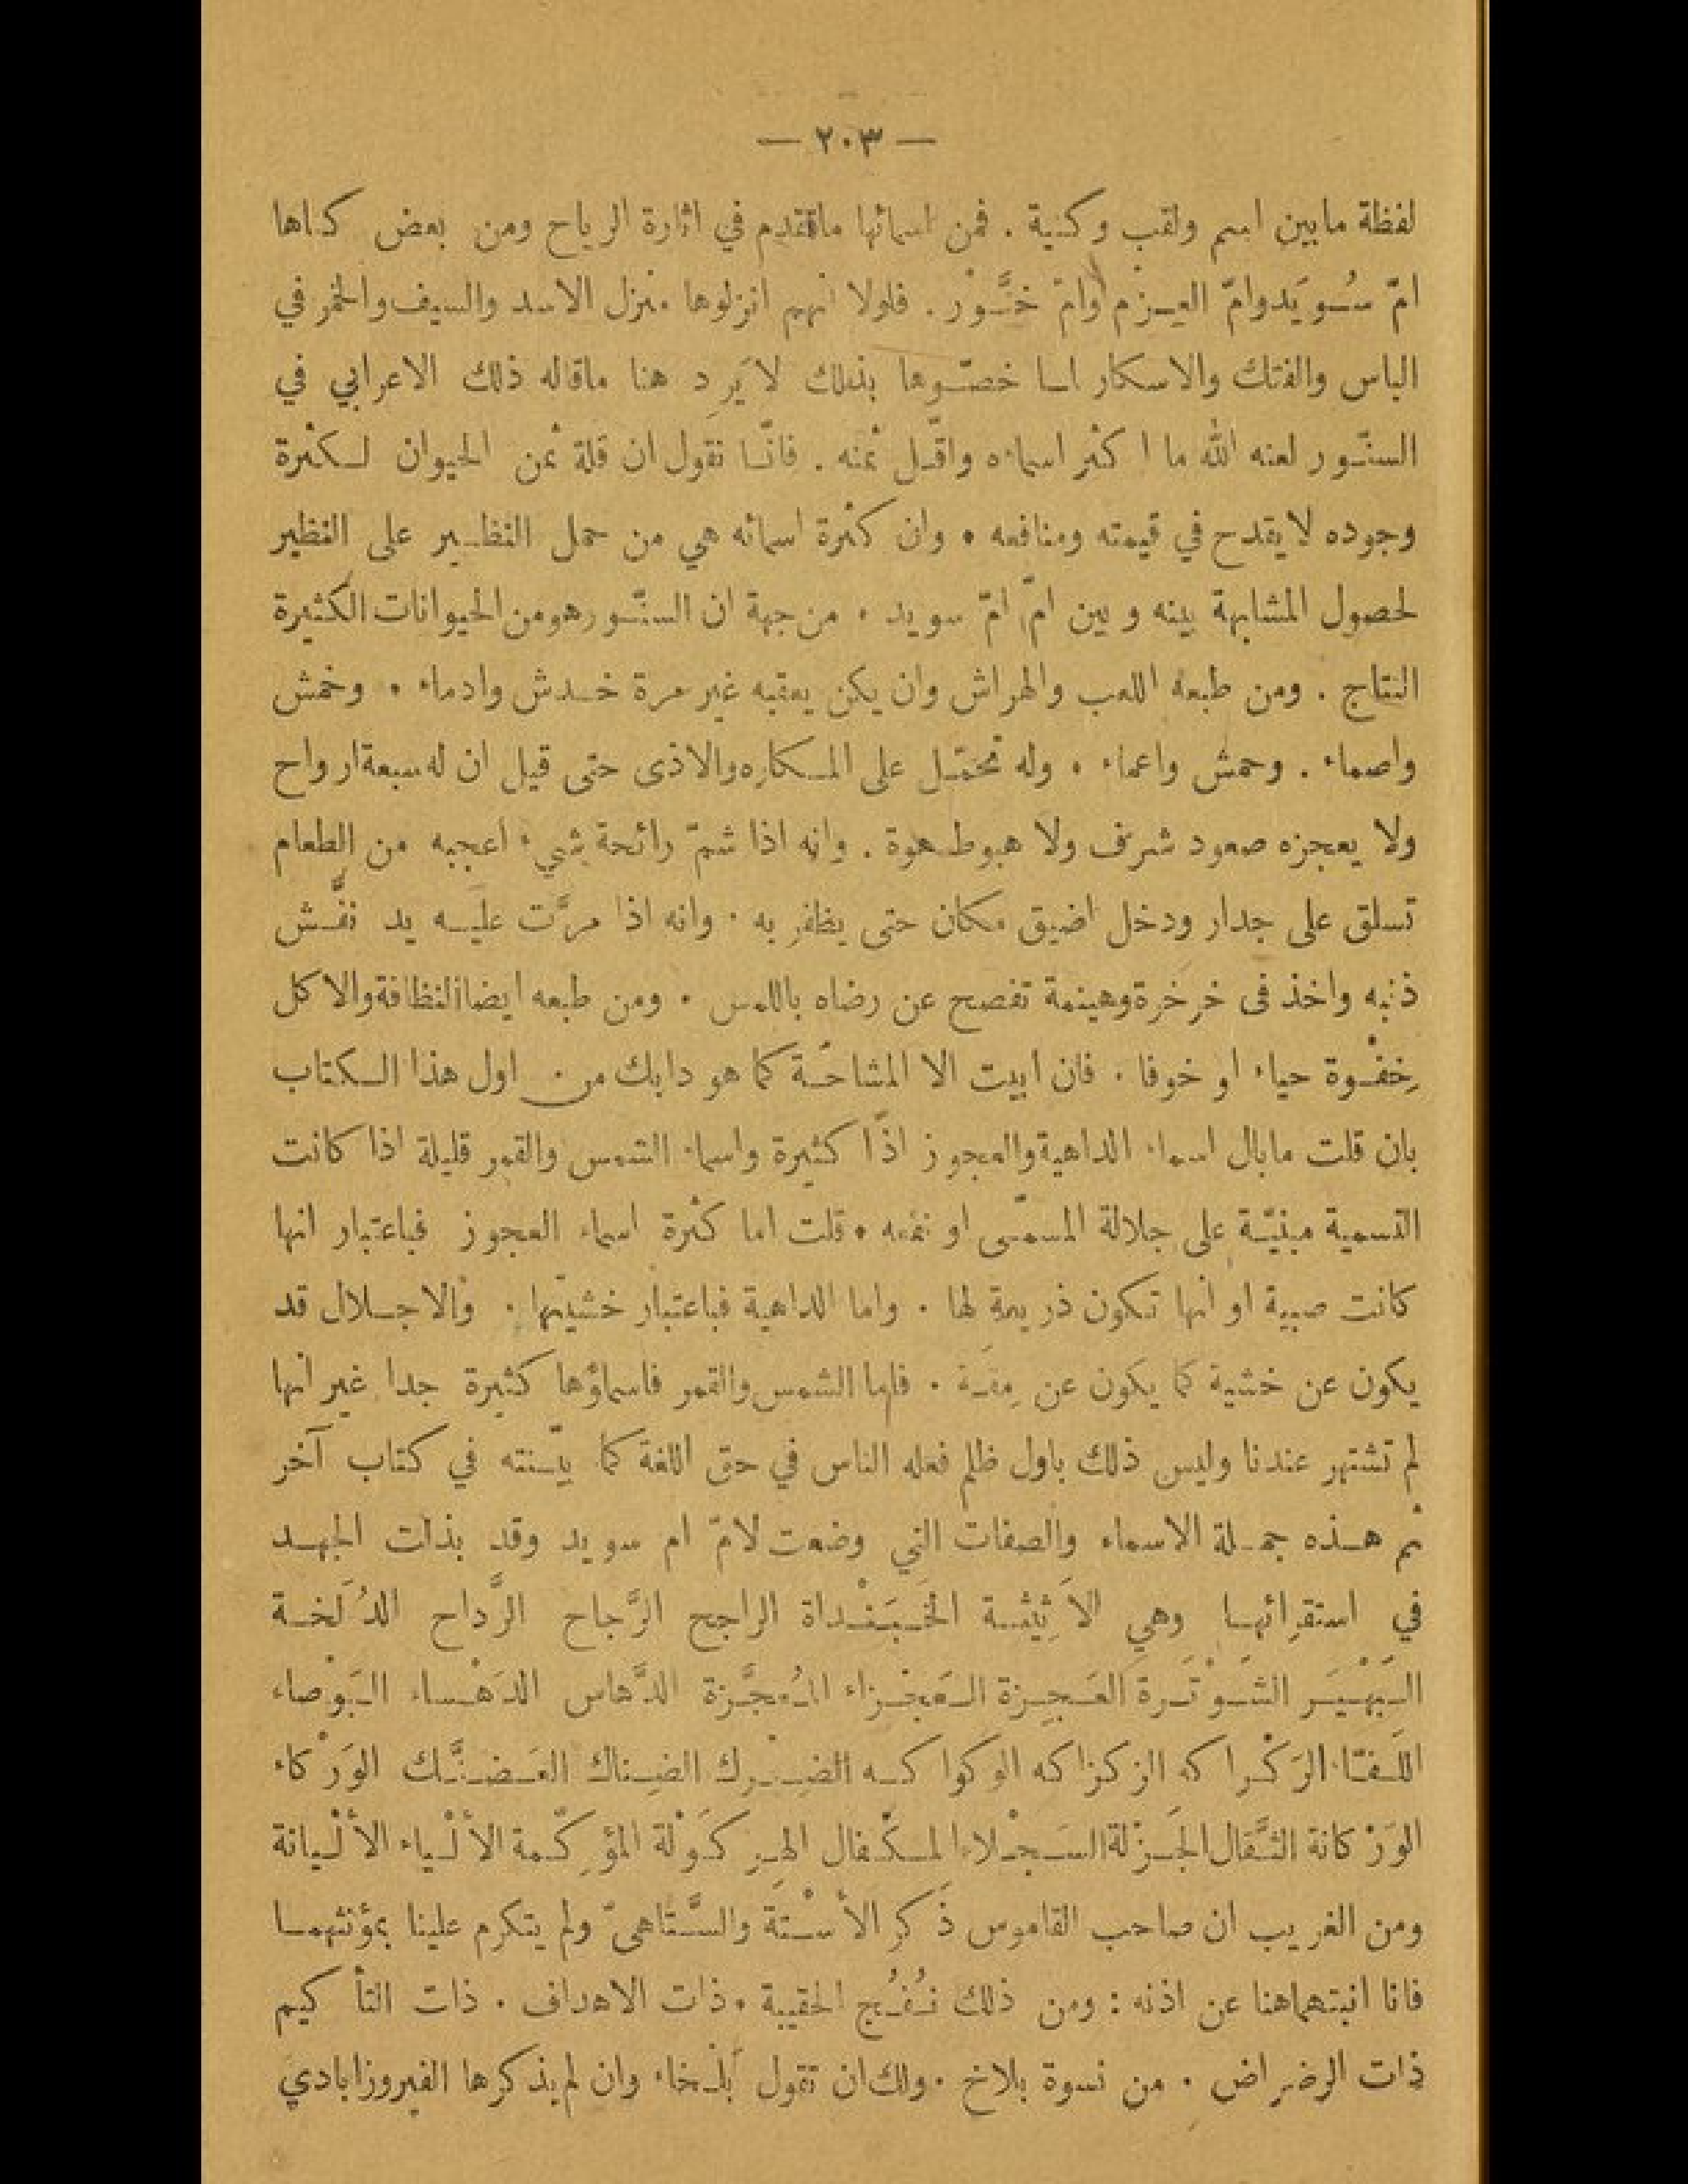 — ٢٠٣ —
لفظة مابين اسم ولقب وكنية . فمن اسمائها ماتقدم في اثارة الرياح ومن بعض كناها
امّ سُويَد وامّ العِزْم وامّ خنَّوْر . فلولا انهم انزلوها منزل الاسد والسيف والخمر في
الباس والفتك والاسكار لما خصّوها بذلك لا يَرِد هنا ماقاله ذلك الاعرابي في
السنّور لعنه الله ما اكثر اسماءه واقلّ ثمنه . فانّا نقول ان قلة ثمن الحيوان لكثرة
وجوده لا يقدح في قيمته ومنافعه . وان كثرة اسمائه هي من حمل النظير على النظير
لحصول المشابهة بينه وبين امّ امّ سويد . من جهة ان السنّور هو من الحيوانات الكثيرة
النتاج . ومن طبعه اللعب والهراش وان يكن يعقبه غير مرة خدش وادماء . وخمش
واصماء . وحمش واعماء . وله تحمّل على المكاره والاذى حتى قيل ان له سبعة ارواح
ولا يعجزه صعود شرف ولا هبوط هوة . وانه اذا شمّ رائحة شيء اعجبه من الطعام
تسلق على جدار ودخل اضيق مكان حتى يظفر به . وانه اذا مرَّت عليه يد نفَّش
ذنبه واخذ فى خرخرة وهينمة تفصح عن رضاه باللمس . ومن طبعه ايضا النظافة والاكل
خِفْوة حياء او خوفا . فان ابيت الا المشاحّة كما هو دابك من اول هذا الكتاب
بان قلت مابال اسماء الداهية والعجوز اذًا كثيرة واسماء الشمس والقمر قليلة اذا كانت
التسمية مبنيّة على جلالة المسمّى او نفعه . قلت اما كثرة اسماء العجوز فباعتبار انها
كانت صبية او انها تكون ذريعة لها . واما الداهية فباعتبار خشيتها . والاجلال قد
يكون عن خشية كما يكون عن مِقَة . فاما الشمس والقمر فاسماؤها كثيرة جدا غير انها
لم تشتهر عندنا وليس ذلك باول ظلم فعله الناس في حق اللغة كما بيّنته في كتاب آخر
ثم هذه جملة الاسماء والصفات التي وضعت لامّ ام سويد وقد بذلت الجهد
في استقرائها وهي الاَثِيْثة الخَبَنْداة الراجح الرَّجاح الرَّداح الدُلَخة
البَهْيَر الشَوْتَرة العَجِزة العَجْزاء المُعَجَّزة الدَّهاس الدَهْساء البَوْصاء
اللَفّاء الرَكْراكه الزكزاكه الوكواكه الضِبْرِك الضِناك العَضَنَّك الوَرْكاء
الوَرْكانة الثَّقال الجَزْلة السَجْلاء المكْفال الهِركَوْلة المؤركّمة الألْياء الألْيانة
ومن الغريب ان صاحب القاموس ذَكر الأسْتَة والسَّتَاهىّ ولم يتكرم علينا بمؤنثهما
فانا انبتهماهنا عن اذنه : ومن ذلك نُفُج الحقيبة . ذات الاهداف . ذات التأكيم
ذات الرضراض . من نسوة بلاخ . ولك ان تقول بَلْخاء وان لم يذكرها الفيروزابادي